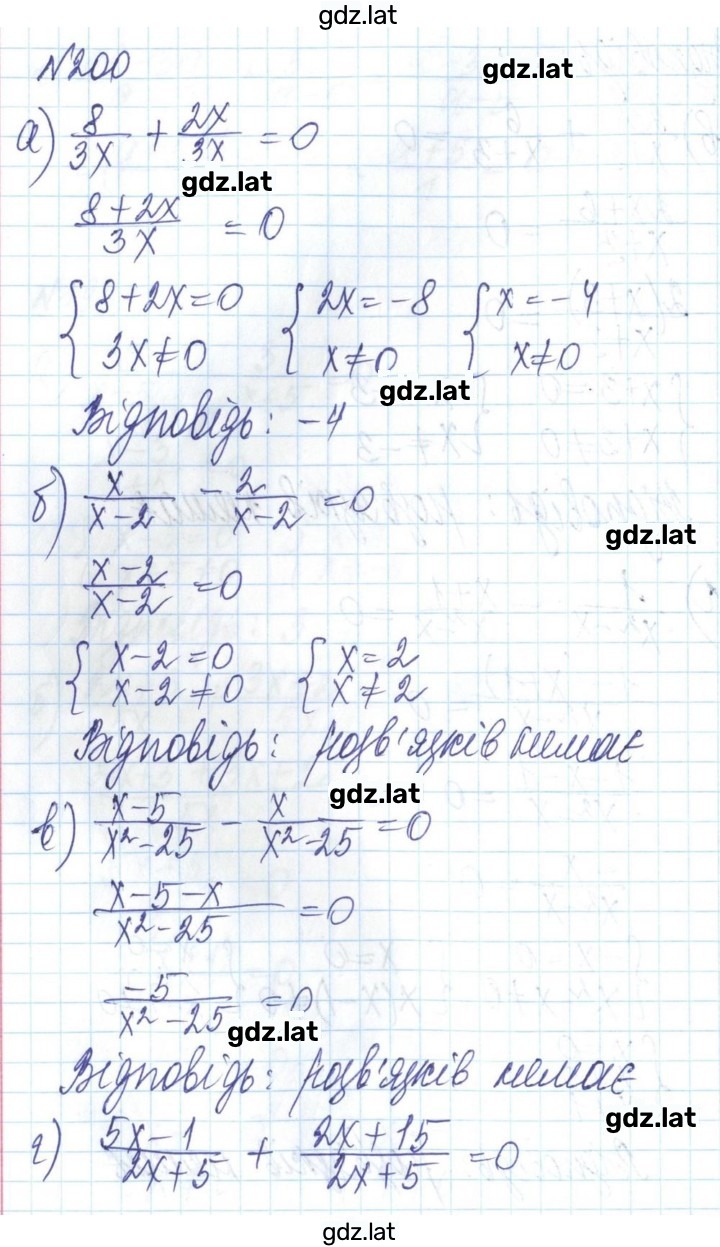 gdz.lat
№200
gdz.lat
а) 8/3x + 2x/3x = 0
gdz.lat
(8+2x)/3x = 0
{8+2x=0 {2x=-8 {x=-4
{3x≠0 {x≠0 {x≠0
gdz.lat
Відповідь: -4
б) x/(x-2) - 2/(x-2) = 0
gdz.lat
(x-2)/(x-2) = 0
{x-2=0 {x=2
{x-2≠0 {x≠2
Відповідь: розв'язків немає
gdz.lat
в) (x-5)/(x²-25) - x/(x²-25) = 0
(x-5-x)/(x²-25) = 0
-5/(x²-25) = 0
gdz.lat
Відповідь: розв'язків немає
gdz.lat
г) (5x-1)/(2x+5) + (2x+15)/(2x+5) = 0
gdz.lat